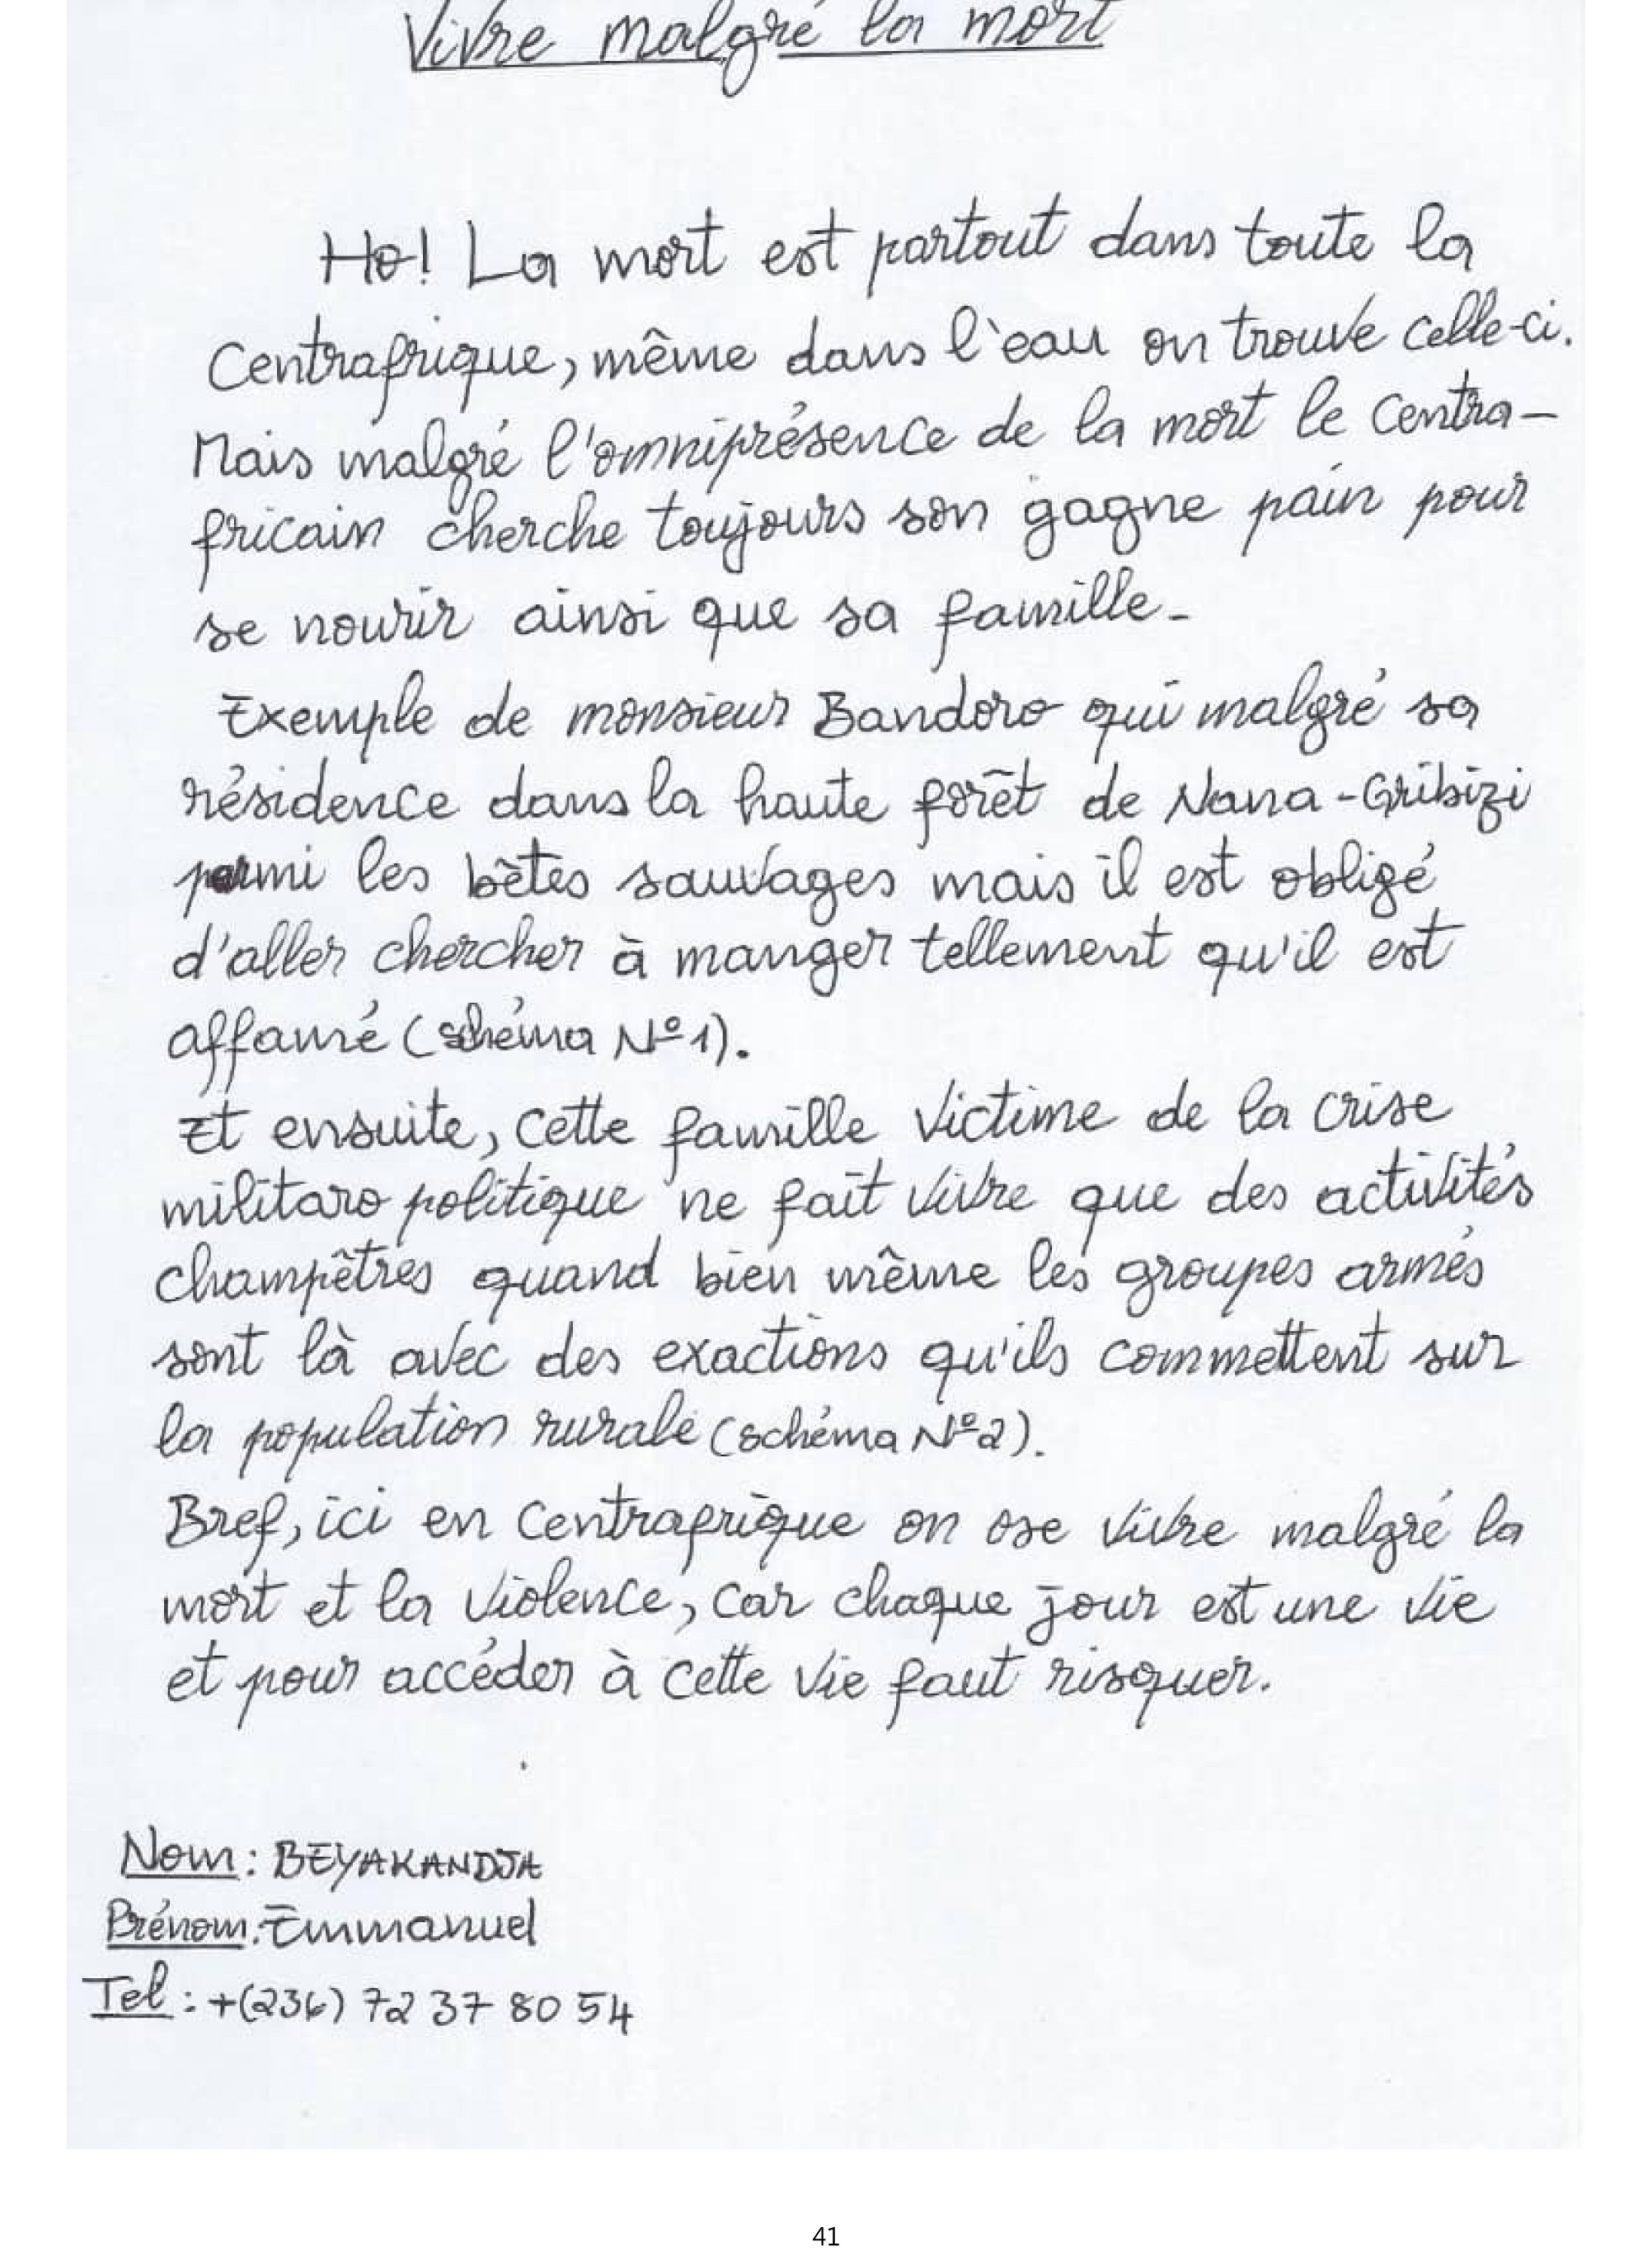 Vivre malgré la mort
Ho! La mort est partout dans toute la
Centrafrique, même dans l'eau on trouve celle-ci.
Mais malgré l'omniprésence de la mort le Centra-
fricain cherche toujours son gagne pain pour
se nourir ainsi que sa famille-
Exemple de monsieur Bandoro qui malgré sa
résidence dans la haute forêt de Nana-Gribizi
parmi les bêtes sauvages mais il est obligé
d'aller chercher à manger tellement qu'il est
affamé (schéma Nº1).
Et ensuite, cette famille victime de la crise
militaro politique ne fait vivre que des activités
champêtres quand bien même les groupes armés
sont là avec des exactions qu'ils commettent sur
la population rurale (schéma Nº2).
Bref, ici en Centrafrique on ose vivre malgré la
mort et la violence, car chaque jour est une vie
et pour accéder à cette vie faut risquer.
Nom: BEYAKANDJA
Prénom: Emmanuel
Tel: +(236) 72 37 80 54
41